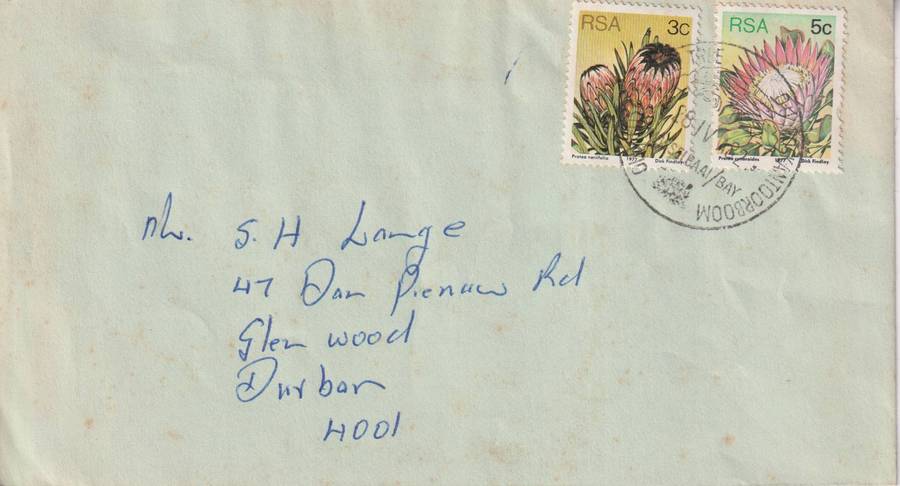 RSA 3c
Protea neriifolia 1977 Dick Findlay
RSA 5c
Protea cynaroides 1977 Dick Findlay
BAAI/BAY
Mr. S. H Lange
47 Dan Pienaar Rd
Glen wood
Durban
4001